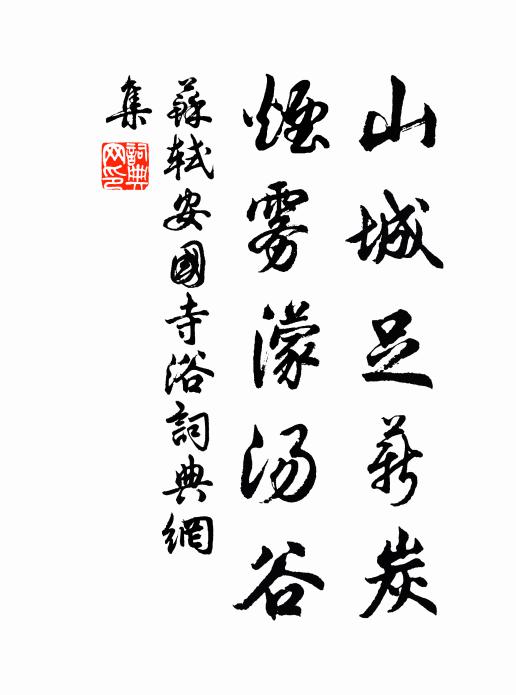 山城足薪炭
煙雾濛汤谷
蘇軾安國寺浴詞典網
集
詞典
网印